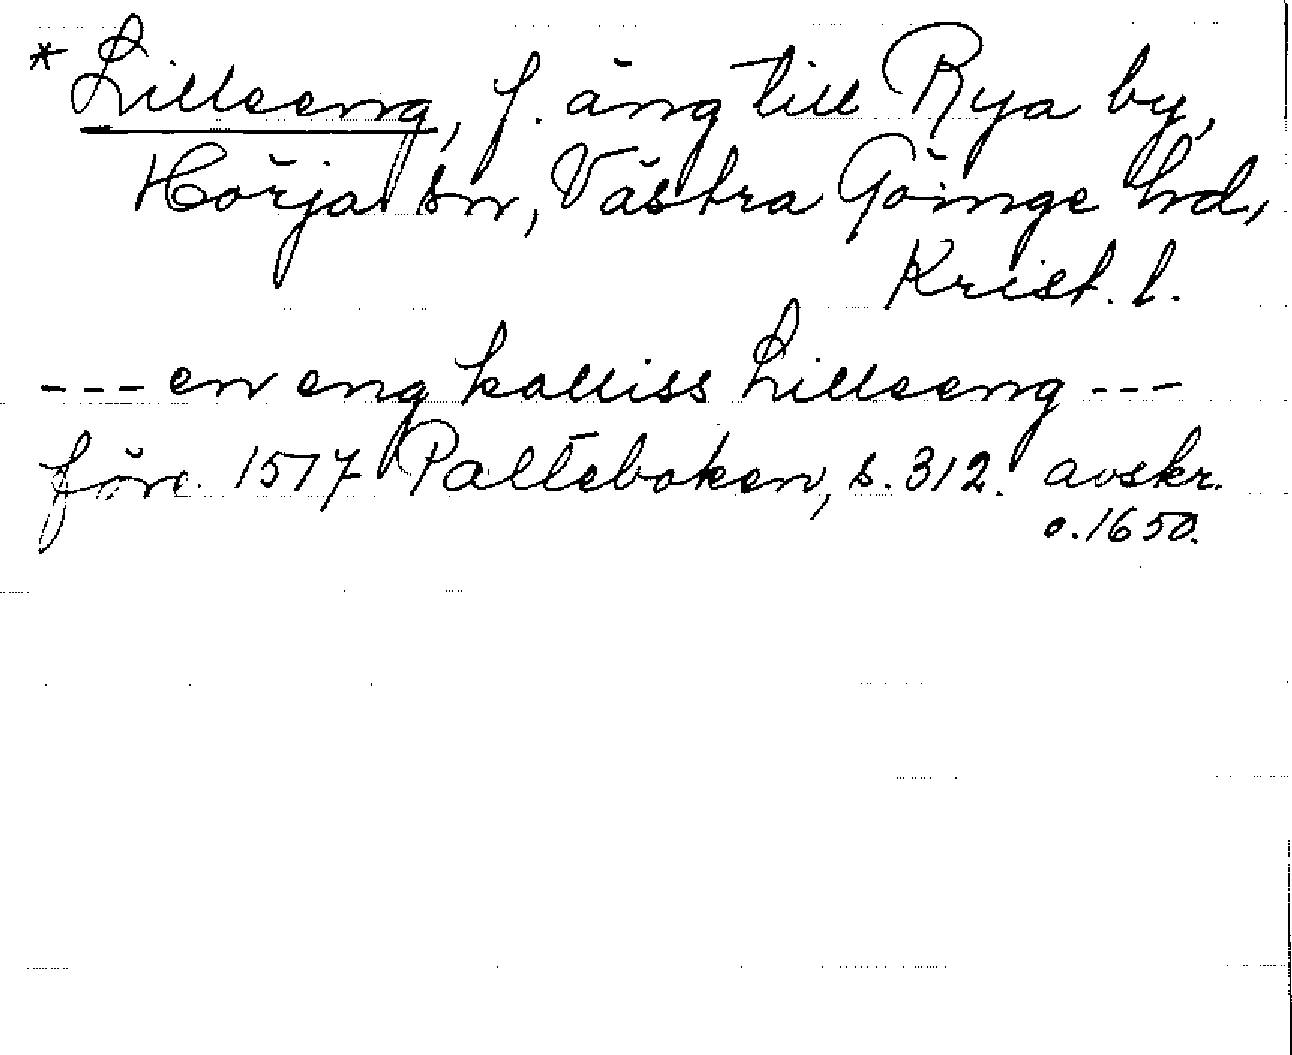 * Lilleeng, f. äng till Rya by,
Hörja sn, Västra Göinge hd,
Krist. l.
--- en eng kalliss Lilleeng ---
före 1517 Palteboken, s. 312. avskr.
c. 1650.